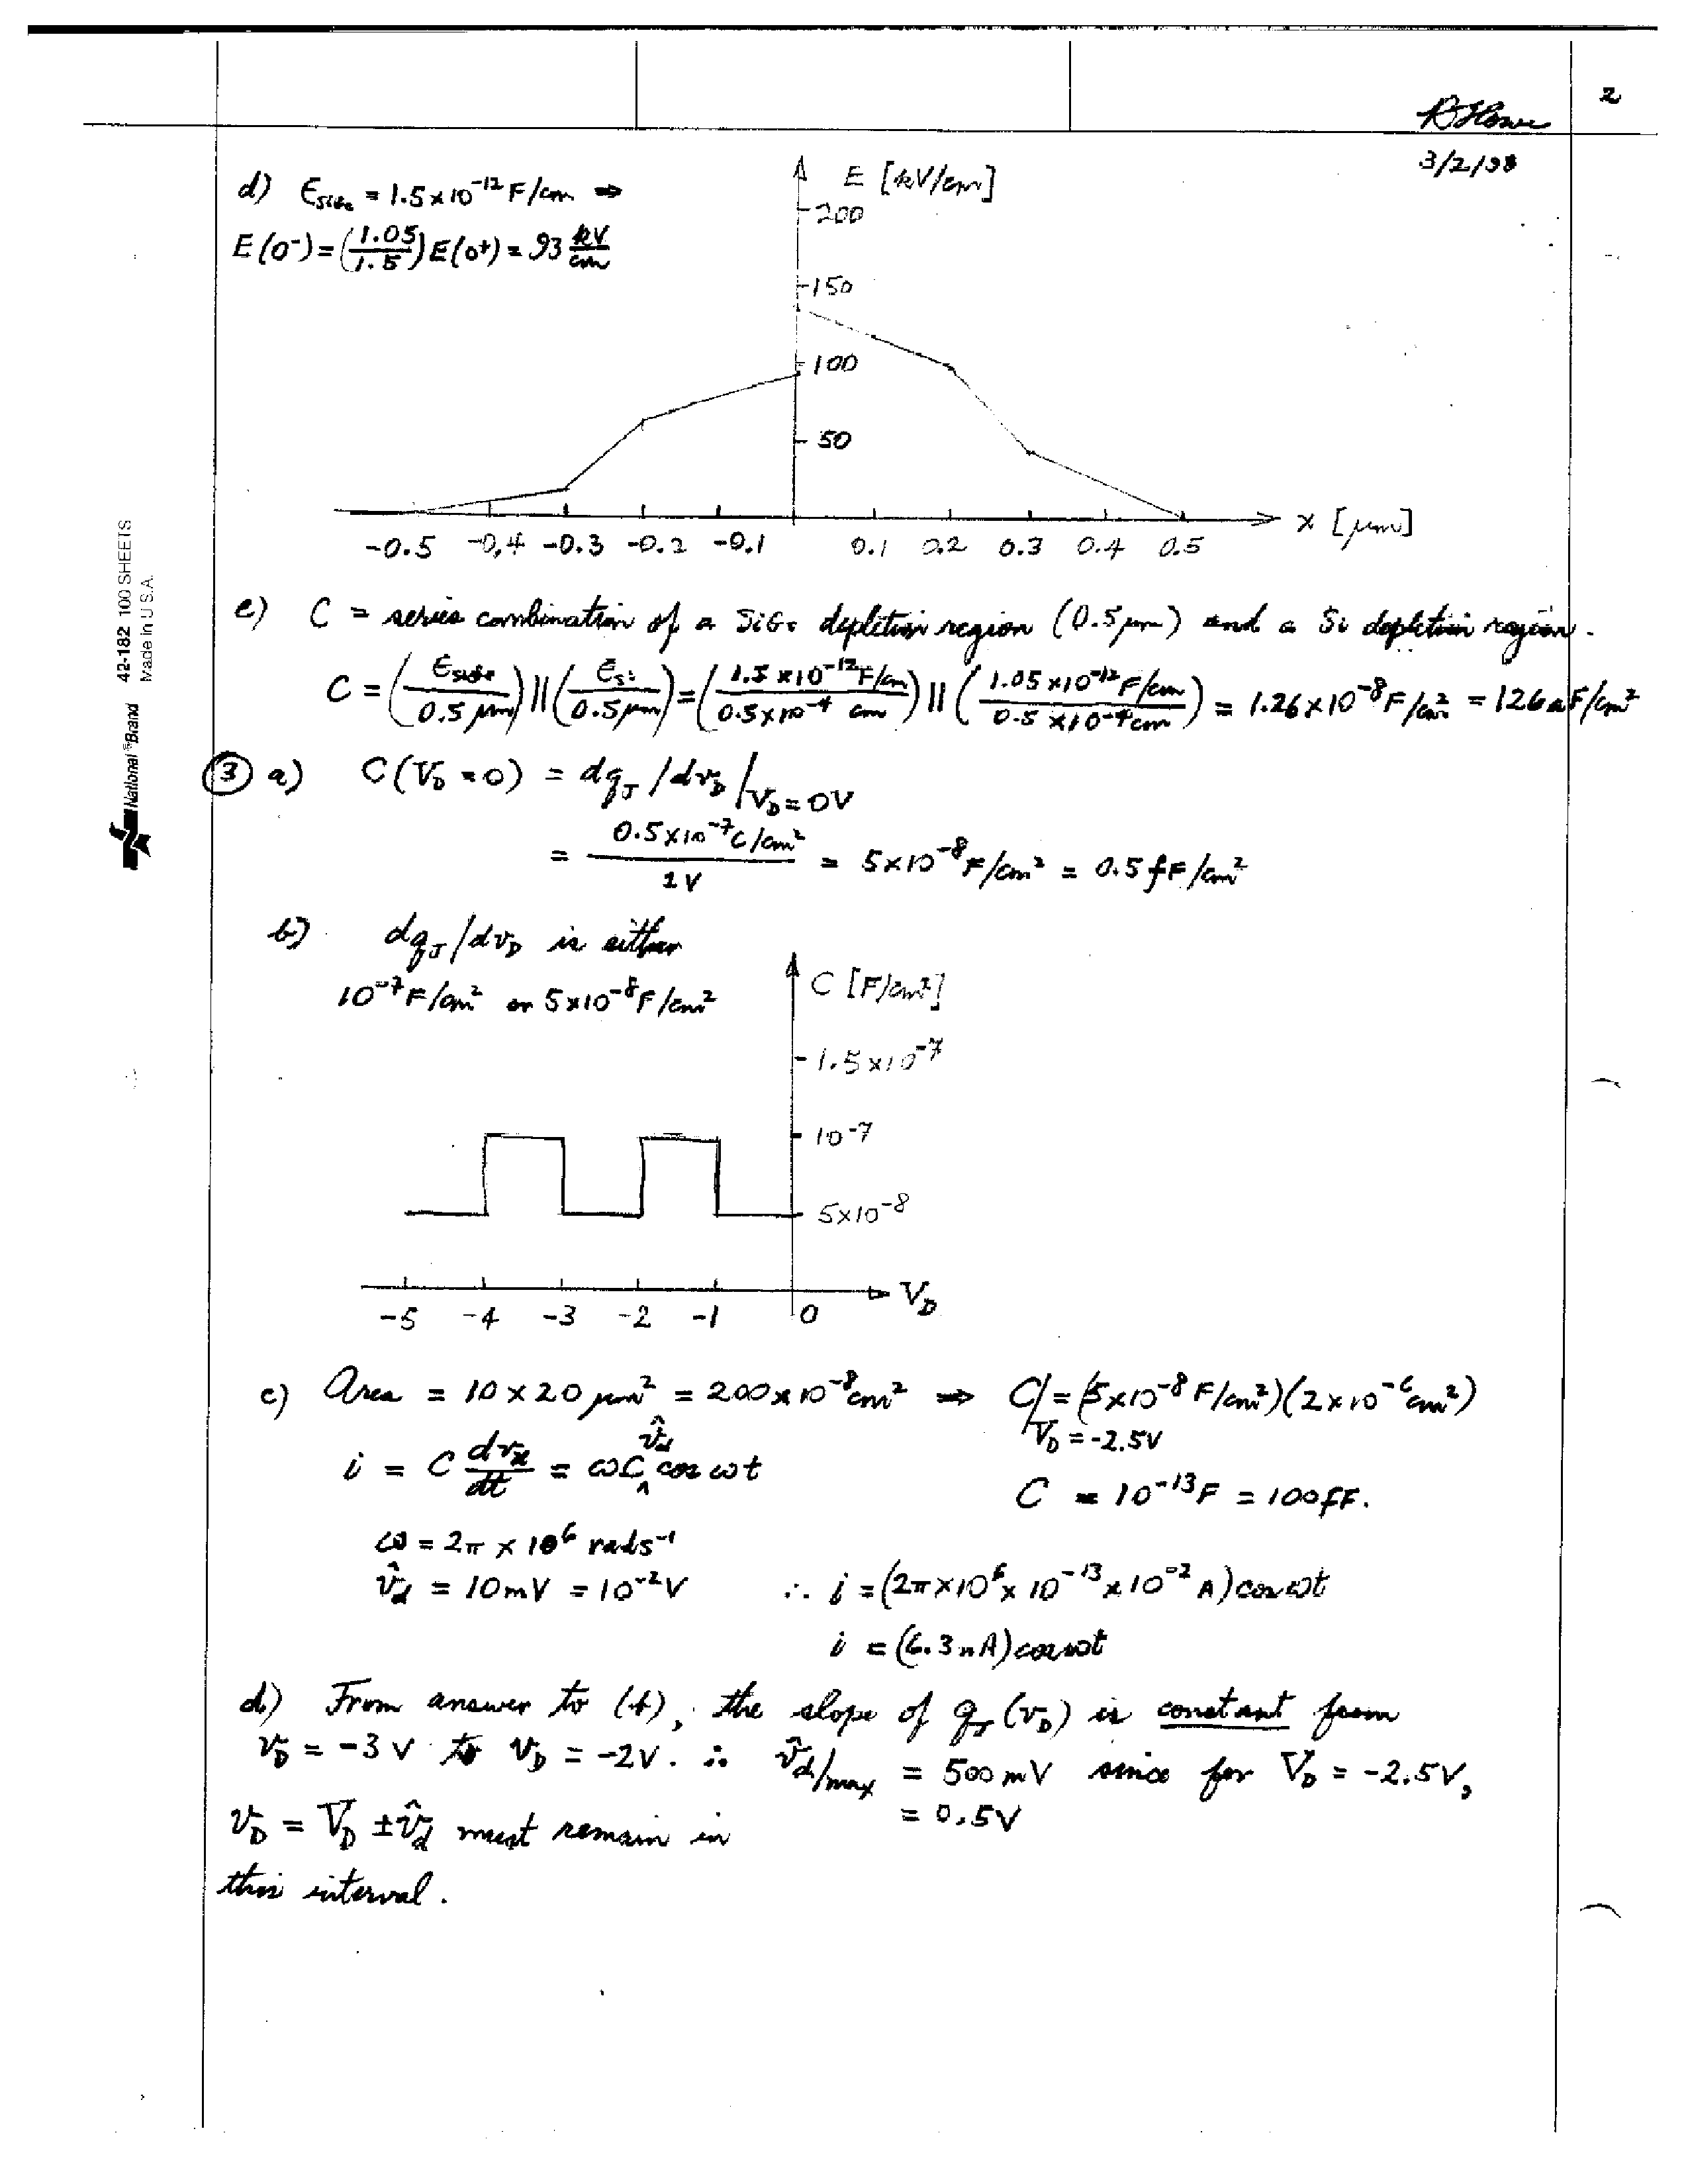 2
RHowe
3/2/98
d) ϵSiGe = 1.5×10⁻¹² F/cm ⇒
E(0⁻) = (1.05/1.5) E(0⁺) = 93 kV/cm
E [kV/cm]
200
150
100
50
-0.5 -0.4 -0.3 -0.2 -0.1 0.1 0.2 0.3 0.4 0.5 x [μm]
42-182 100 SHEETS
Made in U.S.A.
National ®Brand
e) C = series combination of a SiGe depletion region (0.5 μm) and a Si depletion region.
C = (ϵSiGe/0.5 μm) || (ϵSi/0.5 μm) = (1.5×10⁻¹² F/cm / 0.5×10⁻⁴ cm) || (1.05×10⁻¹² F/cm / 0.5×10⁻⁴ cm) = 1.26×10⁻⁸ F/cm² = 126 aF/cm²
③ a) C(V_D = 0) = dq_J/dv_D |V_D = 0V
= 0.5×10⁻⁷ C/cm² / 1V = 5×10⁻⁸ F/cm² = 0.5 fF/cm²
b) dq_J/dv_D is either
10⁻⁷ F/cm² or 5×10⁻⁸ F/cm²
C [F/cm²]
1.5×10⁻⁷
10⁻⁷
5×10⁻⁸
-5 -4 -3 -2 -1 0 V_D
c) Area = 10×20 μm² = 200×10⁻⁸ cm² ⇒ C|V_D = -2.5V = (5×10⁻⁸ F/cm²)(2×10⁻⁶ cm²)
i = C dv_d/dt = ωC v̂_d cos ωt
C = 10⁻¹³ F = 100 fF.
ω = 2π × 10⁶ rads⁻¹
v̂_d = 10mV = 10⁻² V ∴ i = (2π×10⁶ × 10⁻¹³ × 10⁻² A) cos ωt
i = (6.3 nA) cos ωt
d) From answer to (b), the slope of q_J(v_D) is constant from
v_D = -3 V to v_D = -2V. ∴ v̂_d|max = 500 mV since for V_D = -2.5V,
= 0.5V
v_D = V_D ± v̂_d must remain in
this interval.